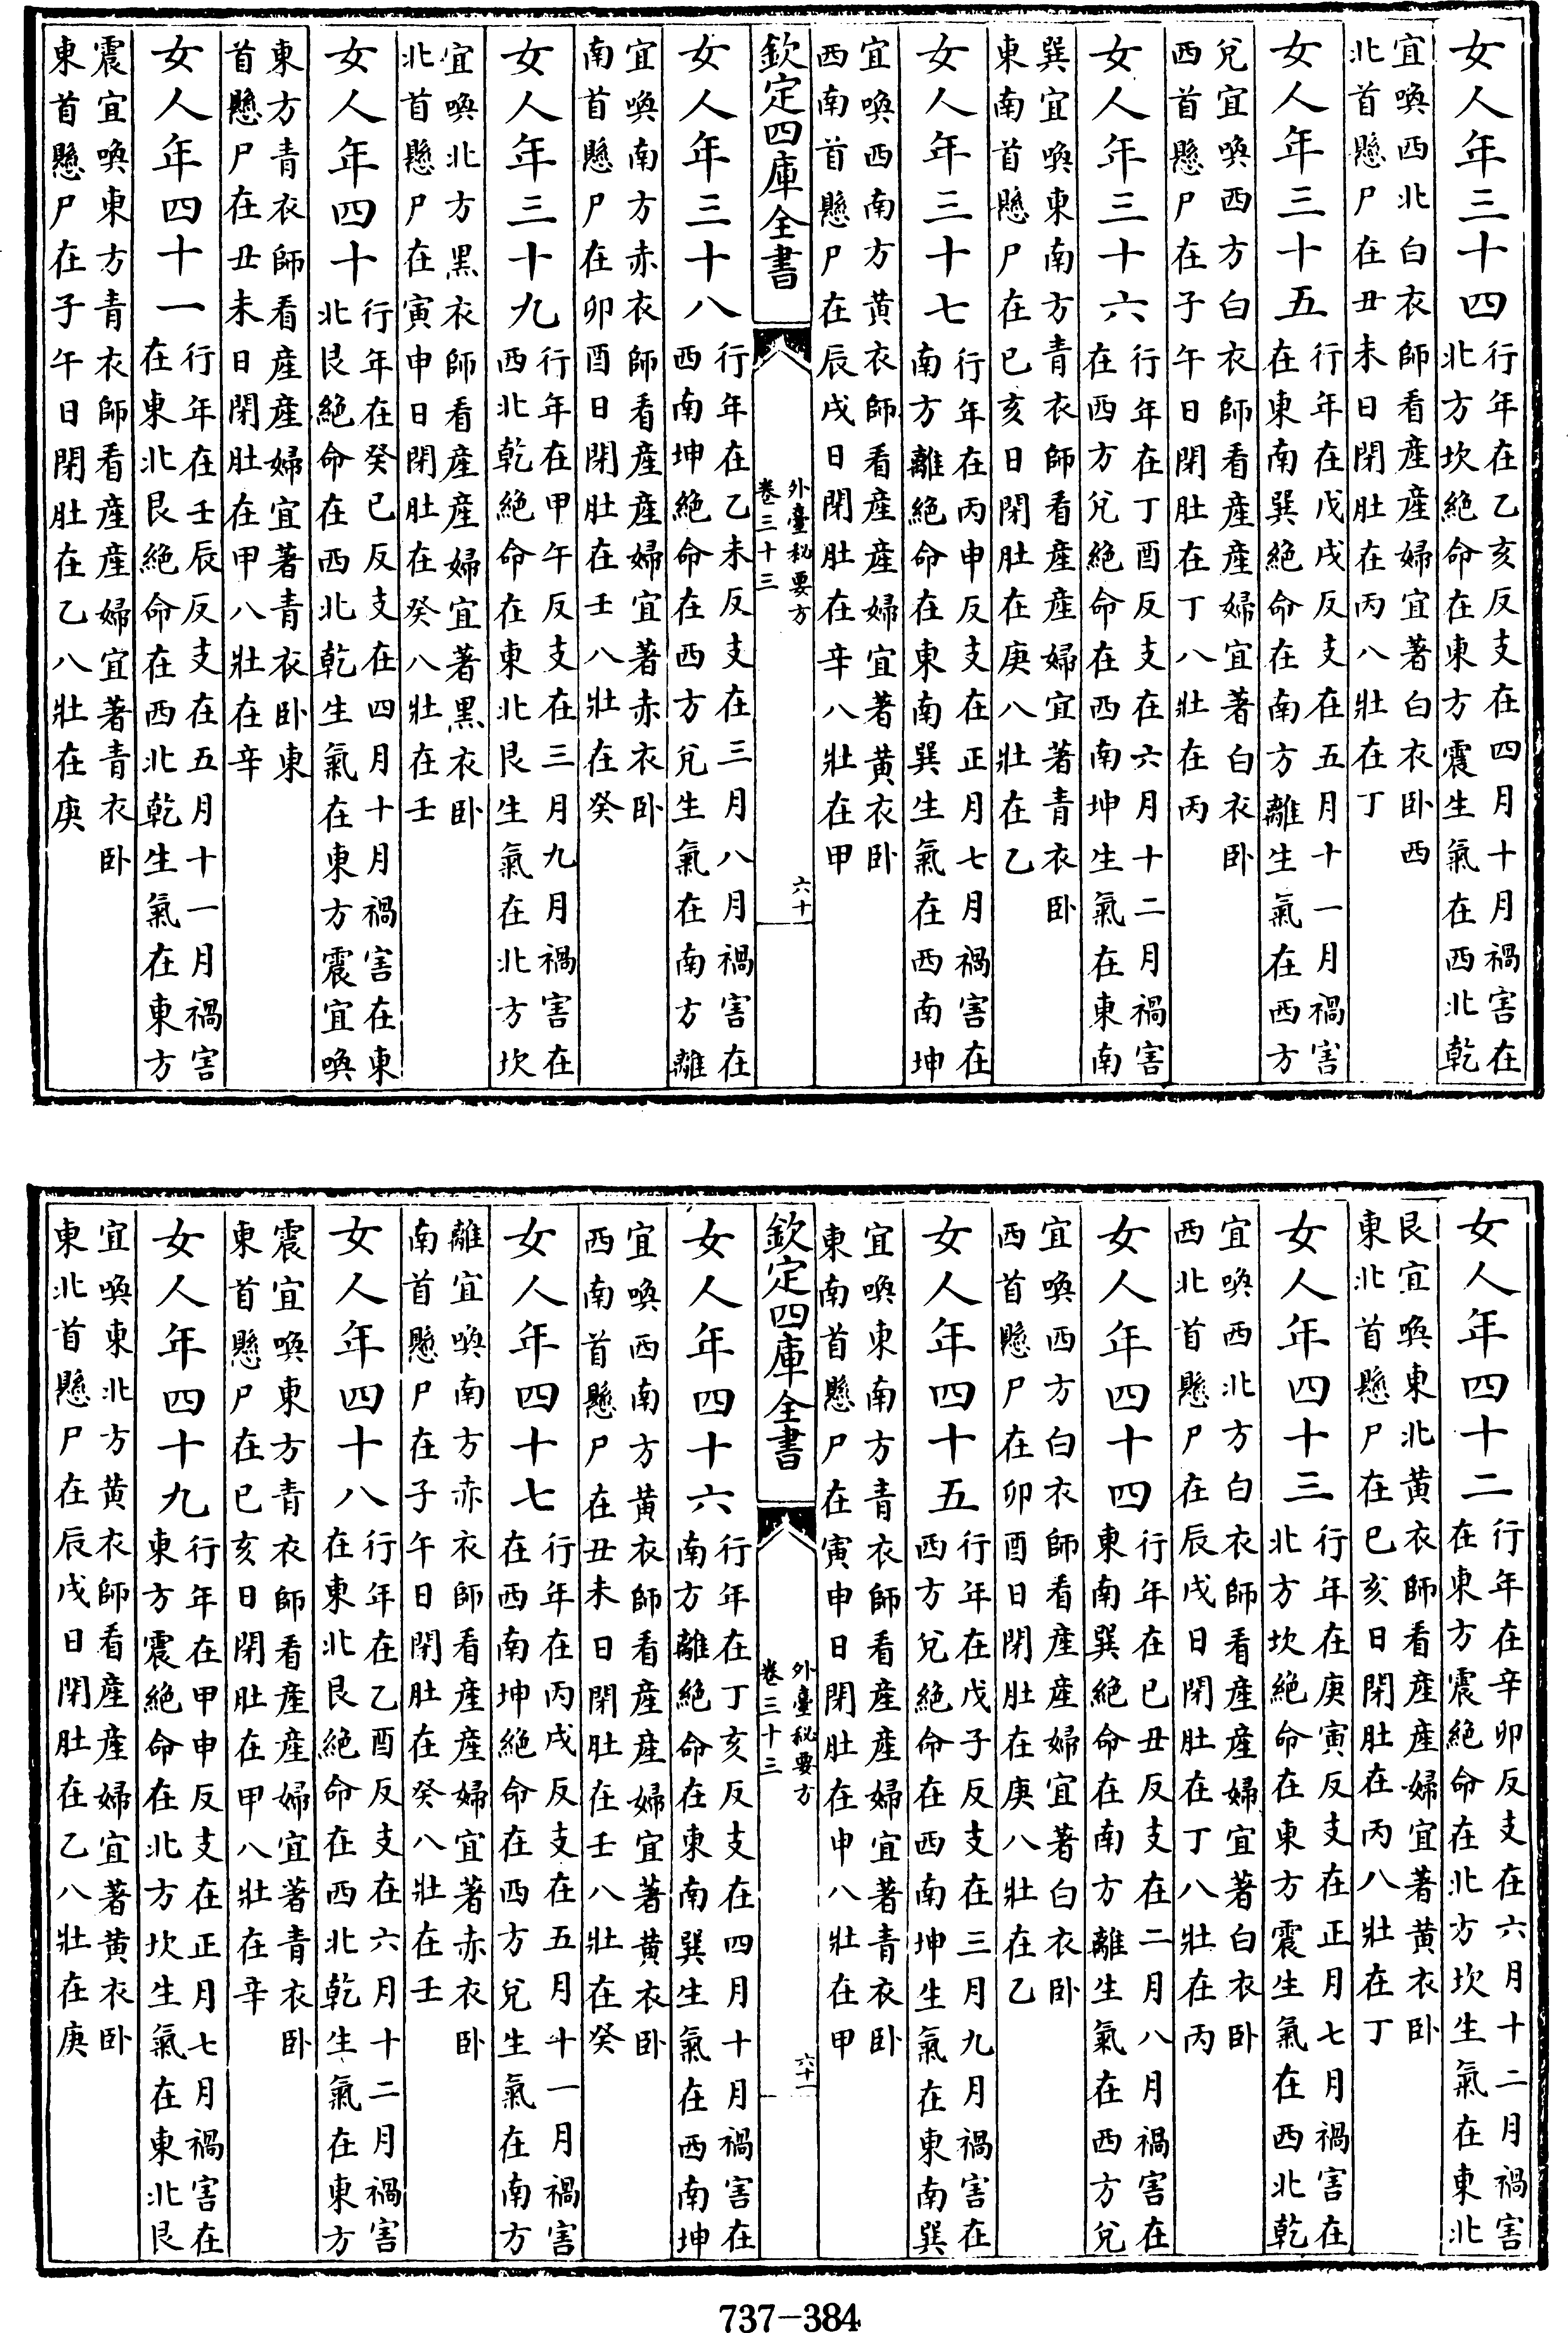 女人年三十四行年在乙亥反支在四月十月禍害在
北方坎絕命在東方震生氣在西北乾
宜喚西北白衣師看産産婦宜著白衣卧西
北首懸尸在丑未日閉肚在丙八壯在丁
女人年三十五行年在戊戌反支在五月十一月禍害
在東南巽絕命在南方離生氣在西方
兌宜喚西方白衣師看産産婦宜著白衣卧
西首懸尸在子午日閉肚在丁八壯在丙
女人年三十六行年在丁酉反支在六月十二月禍害
在西方兌絕命在西南坤生氣在東南
巽宜喚東南方青衣師看産産婦宜著青衣卧
東南首懸尸在已亥日閉肚在庚八壯在乙
女人年三十七行年在丙申反支在正月七月禍害在
南方離絕命在東南巽生氣在西南坤
宜喚西南方黃衣師看産産婦宜著黃衣卧
西南首懸尸在辰戌日閉肚在辛八壯在甲
欽定四庫全書
外臺秘要方
卷三十三
六十
女人年三十八行年在乙未反支在三月八月禍害在
西南坤絕命在西方兌生氣在南方離
宜喚南方赤衣師看産産婦宜著赤衣卧
南首懸尸在卯酉日閉肚在壬八壯在癸
女人年三十九行年在甲午反支在三月九月禍害在
西北乾絕命在東北艮生氣在北方坎
宜喚北方黑衣師看産産婦宜著黑衣卧
北首懸尸在寅申日閉肚在癸八壯在壬
女人年四十行年在癸已反支在四月十月禍害在東
北艮絕命在西北乾生氣在東方震宜喚
東方青衣師看産産婦宜著青衣卧東
首懸尸在丑未日閉肚在甲八壯在辛
女人年四十一行年在壬辰反支在五月十一月禍害
在東北艮絕命在西北乾生氣在東方
震宜喚東方青衣師看産産婦宜著青衣卧
東首懸尸在子午日閉肚在乙八壯在庚
女人年四十二行年在辛卯反支在六月十二月禍害
在東方震絕命在北方坎生氣在東北
艮宜喚東北黃衣師看産産婦宜著黃衣卧
東北首懸尸在已亥日閉肚在丙八壯在丁
女人年四十三行年在庚寅反支在正月七月禍害在
北方坎絕命在東方震生氣在西北乾
宜喚西北方白衣師看産産婦宜著白衣卧
西北首懸尸在辰戌日閉肚在丁八壯在丙
女人年四十四行年在已丑反支在二月八月禍害在
東南巽絕命在南方離生氣在西方兌
宜喚西方白衣師看産産婦宜著白衣卧
西首懸尸在卯酉日閉肚在庚八壯在乙
女人年四十五行年在戊子反支在三月九月禍害在
西方兌絕命在西南坤生氣在東南巽
宜喚東南方青衣師看産産婦宜著青衣卧
東南首懸尸在寅申日閉肚在申八壯在甲
欽定四庫全書
外臺秘要方
卷三十三
六十一
女人年四十六行年在丁亥反支在四月十月禍害在
南方離絕命在東南巽生氣在西南坤
宜喚西南方黃衣師看産産婦宜著黃衣卧
西南首懸尸在丑未日閉肚在壬八壯在癸
女人年四十七行年在丙戌反支在五月十一月禍害
在西南坤絕命在西方兌生氣在南方
離宜喚南方赤衣師看産産婦宜著赤衣卧
南首懸尸在子午日閉肚在癸八壯在壬
女人年四十八行年在乙酉反支在六月十二月禍害
在東北艮絕命在西北乾生氣在東方
震宜喚東方青衣師看産産婦宜著青衣卧
東首懸尸在已亥日閉肚在甲八壯在辛
女人年四十九行年在甲申反支在正月七月禍害在
東方震絕命在北方坎生氣在東北艮
宜喚東北方黃衣師看産産婦宜著黃衣卧
東北首懸尸在辰戌日閉肚在乙八壯在庚
737-384